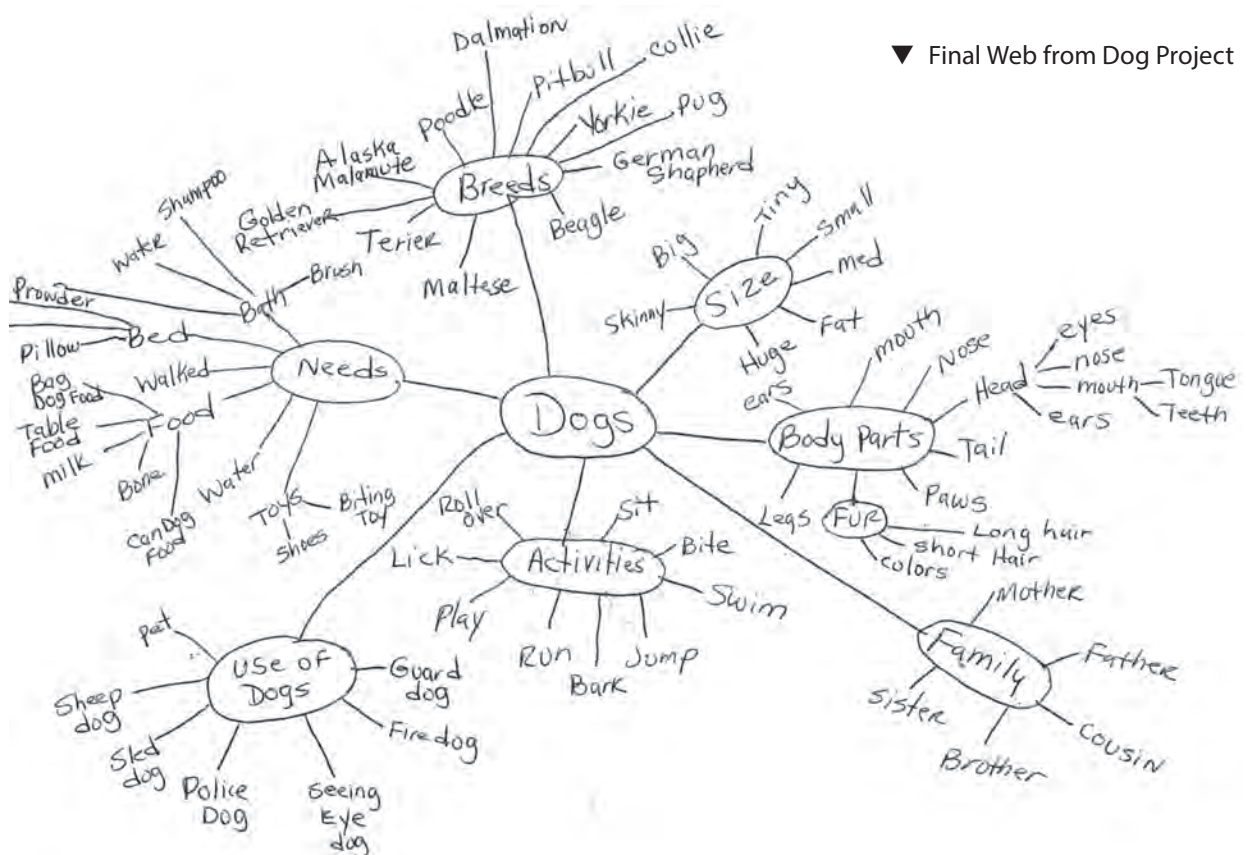 ▼ Final Web from Dog Project
Dogs
Breeds
Dalmation
Pitbull
Collie
Poodle
Yorkie
Pug
German
Shapherd
Beagle
Maltese
Terier
Golden
Retriever
Alaska
Malamute
Size
Tiny
Small
med
Fat
Huge
Skinny
Big
Body Parts
ears
mouth
Nose
Head
eyes
nose
mouth
Tongue
Teeth
ears
Tail
Paws
FUR
Long hair
short Hair
colors
Legs
Family
Mother
Father
Cousin
Brother
Sister
Activities
Roll
over
Sit
Bite
Swim
Jump
Bark
Run
Play
Lick
Use of
Dogs
Guard
dog
Fire dog
Seeing
Eye
dog
Police
Dog
Sled
dog
Sheep
dog
pet
Needs
Bath
Shampoo
Water
Brush
Prowder
Bed
Pillow
Walked
Food
Bag
Dog Food
Table
Food
milk
Bone
Can Dog
Food
Water
Toys
Biting
Toy
Shoes